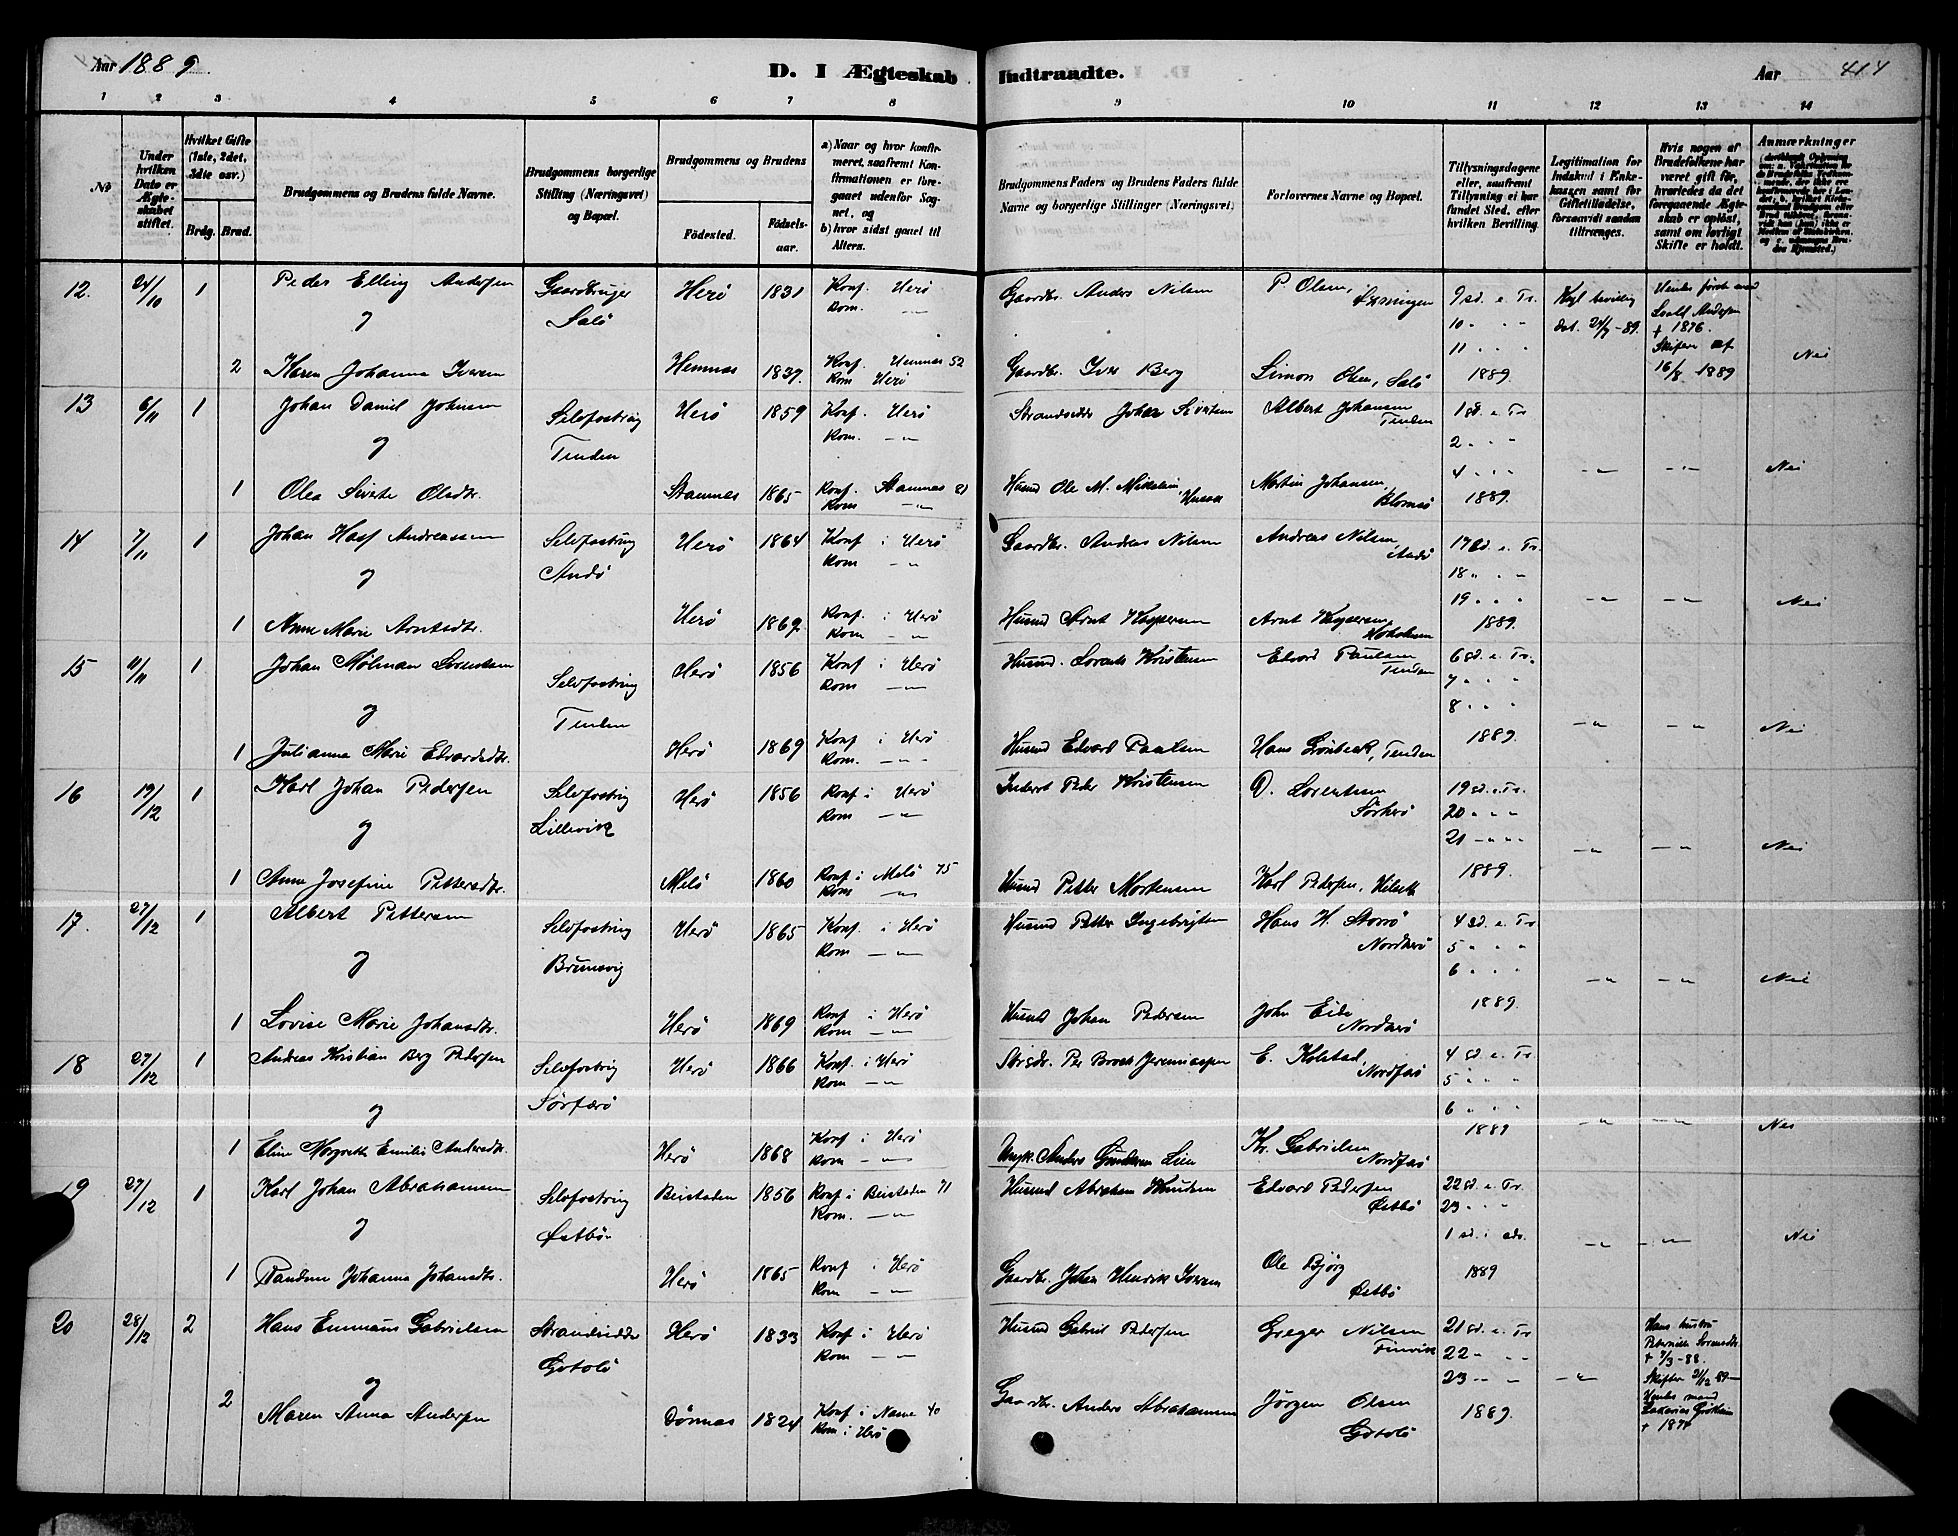 Aar 1889.
D. I Ægteskab Indtraadte.
Aar 414
1 2 3 4 5 6 7 8 9 10 11 12 13 14
№
Under hvilken Dato er Ægteskabet stiftet.
Hvilket Gifte (1ste, 2det, 3die osv.)
Brdg. Brud.
Brudgommens og Brudens fulde Navne.
Brudgommens borgerlige Stilling (Næringsvei) og Bopæl.
Brudgommens og Brudens
Fødested.
Fødselsaar.
a) Naar og hvor konfirmeret, saafremt Konfirmationen er foregaaet udenfor Sognet, og
b) hvor sidst gaaet til Alters.
Brudgommens Faders og Brudens Faders fulde Navne og borgerlige Stillinger (Næringsvei)
Forlovernes Navne og Bopæl.
Tillysningsdagene eller, saafremt Tillysning ei har fundet Sted, efter hvilken Bevilling.
Legitimation for Indskud i Enkekassen samt for Giftetilladelse, forsaavidt saadan tiltrænges.
Hvis nogen af Brudefolkene har været gift før, hvorledes da det foregaaende Ægteskab er opløst, samt om lovligt Skifte er holdt.
Anmærkninger
12. 24/10 1 Peder Elling Andersen Gaardbruger Herö 1831 Konf. Herö Gaardbr. Anders Nilsen P Olsen, 9 sd. e Tr. Kgl bevilling
og Salö Kom. — " — 10 " " " det. 24/9 - 89. + 1876.
11 " " " Skiften af
2 Karen Johanna Iversen Hemnæs 1837. Konf. Hemnæs 52 Kom Herö Gaardbr. Iver Berg Simon Olsen, Salö 1889. 16/8 1889 Nei
13 6/11 1 Johan Daniel Johnsen Selvfostring Herö 1859 Konf. Herö Albert Johansen Tenden 1 sd. e Tr
og Tenden Kom. — " — 2 " " "
4 " " " — " — — " — Nei
1 Olea Sivete Olsdtr. Stamnæs 1865 Konf. Stamnæs 81 Kom — " — Husmd Ole M. Mikkelsen, Martin Johansen, Blomsö 1889.
14 7/11 1 Johan Hass Andreassen Selvfostring Herö 1864 Konf i Herö Gaardbr. Andreas Nilsen Andreas Nilsen, Andö 17 sd. e. Tr.
og Andö Kom — " — 18 " " "
19 " " " — " — — " — Nei
1 Anne Marie Arntsdtr. Herö 1869. Konf. i Herö Kom — " — Husmd Arnt Kaspersen Arnt Kaspersen, 1889.
15 4/11 1 Johan Mølman Lorentsen Selvfostring Herö 1856 Konf i Herö Husmd. Lorents Kristensen Edvard Paulsen Tenden 6 sd. e. Tr.
og Tenden Kom — " — 7 " " "
8 " " " — " — — " — Nei
1 Julianna Marie Edvardsdtr. Herö 1869 Konf i Herö Kom. — " — Husmd Edvard Paulsen Hans Grønbeck, Tenden 1889.
16 19/12 1 Karl Johan Pedersen Selvfostring Herö 1856 Konf i Herö Inderst Peder Kristensen O. Lorentsen Sörherö 19 sd. e. Tr.
og Lillevik Kom — " — 20 " " "
21 " " " — " — — " — Nei
1 Anne Josefine Pettersdtr. Melö 1860 Konf i Melö 75 Kom — " — Husmd Petter Mortensen Karl Pedersen, 1889.
17. 27/12 1 Albert Pettersen Selvfostring Herö 1865 Konf. i Herö Husmd Petter Ingebrigtsen Hans H. Storrö Nordherö 4 sd. e. Tr
og Brunsvig Kom — " — 5 " " "
6 " " " — " — — " — Nei
1 Lovise Marie Johansdtr. Herö 1869 Konf i Herö Kom — " — Husmd Johan Pedersen John Eide Nordherö 1889.
18 27/12 1 Andreas Kristian Berg Pedersen Selvfostrig Herö 1866 Konf. i Herö E. Kolstad, Nordfærö 4 sd. e. Tr
og Sörfærö Kom — " — 5 " " "
6 " " " — " — — " — Nei
1 Eline Margrethe Emilie Andersdtr. Herö 1868 Konf i Herö Kom — " — Anders Gundersen Lien Kr. Gabrielsen Nordfærö 1889
19 27/12 1 Karl Johan Abrahamsen Selvfostring Beistaden 1856 Konf i Beistaden 71 Husmd Abraham Knudsen Edvard Pedersen Østbö 22 sd. e. Tr.
og Østbö. Kom. — " — 23 " " "
1 sd. i adv. — " — — " — Nei
1 Randine Johanna Johansdtr. Herö 1865 Konf i Herö Kom — " — Gaardbr. Johan Henrik Iversen Ole Bjørg Østbö 1889
20 28/12 2 Hans Emmaus Gabrielsen Strandsidder Herö 1833 Konf i Herö Husmd Gabriel Pedersen Greger Nilsen Finvik 21 sd. e. Tr Hans hustru
og Gotolö Kom — " — 22 " " " + 7/3 - 88.
23 " " " — " — Skifter 21/12 89 —
2 Maren Anna Andersen Dönnæs 1824 Konf i Næsne 40 Kom i Herö Gaardbr. Anders Abrahamsen Jörgen Olsen Gotolö 1889. Hendes mand
+ 1874